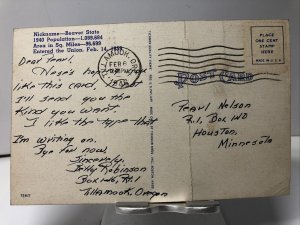 Nickname—Beaver State
1940 Population—1,089,684
Area in Sq. Miles—96,699
Entered the Union, Feb. 14, 1859
TILLAMOOK, ORE.
FEB 6
PLACE
ONE CENT
STAMP
HERE
MADE IN U.S.A.
POST CARD
Dear Pearl,
Here's hoping you
like this card. If not
I'll send you the
kind you want.
I like the type that
I'm writing on.
Bye for now,
Sincerely,
Betty Robinson
Box 46, Rt. 1
Tillamook, Oregon
Pearl Nelson
R.1, Box 140
Houston,
Minnesota